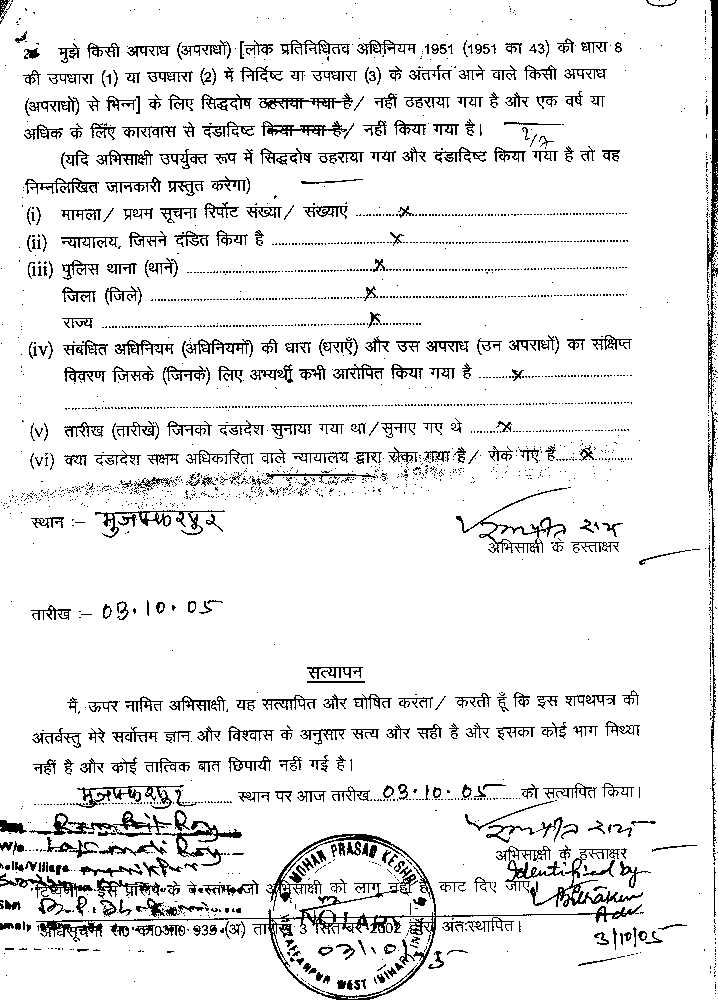 2. मुझे किसी अपराध (अपराधों) [लोक प्रतिनिधित्व अधिनियम 1951 (1951 का 43) की धारा 8
की उपधारा (1) या उपधारा (2) में निर्दिष्ट या उपधारा (3) के अंतर्गत आने वाले किसी अपराध
(अपराधों) से भिन्न] के लिए सिद्धदोष ठहराया गया है/ नहीं ठहराया गया है और एक वर्ष या
अधिक के लिए कारावास से दंडादिष्ट किया गया है/ नहीं किया गया है।
(यदि अभिसाक्षी उपर्युक्त रूप में सिद्धदोष ठहराया गया और दंडादिष्ट किया गया है तो वह
निम्नलिखित जानकारी प्रस्तुत करेगा)
(i) मामला/ प्रथम सूचना रिर्पोट संख्या/ संख्याएं ......x......
(ii) न्यायालय, जिसने दंडित किया है ......x......
(iii) पुलिस थाना (थानें) ......x......
जिला (जिले) ......x......
राज्य ......x......
(iv) संबंधित अधिनियम (अधिनियमों) की धारा (धराएँ) और उस अपराध (उन अपराधों) का संक्षिप्त
विवरण जिसके (जिनके) लिए अभ्यर्थी कभी आरोपित किया गया है ......x......
(v) तारीख (तारीखें) जिनको दंडादेश सुनाया गया था/सुनाए गए थे ......x......
(vi) क्या दंडादेश सक्षम अधिकारिता वाले न्यायालय द्वारा रोका गया है/ रोके गए हैं......x......
स्थान :- मुजफ्फरपुर
अभिसाक्षी के हस्ताक्षर
तारीख :- 03.10.05
सत्यापन
मैं, ऊपर नामित अभिसाक्षी, यह सत्यापित और घोषित करता/ करती हूँ कि इस शपथपत्र की
अंतर्वस्तु मेरे सर्वोत्तम ज्ञान और विश्वास के अनुसार सत्य और सही है और इसका कोई भाग मिथ्या
नहीं है और कोई तात्विक बात छिपायी नहीं गई है।
मुजफ्फरपुर स्थान पर आज तारीख 03.10.05 को सत्यापित किया।
W/o
अभिसाक्षी के हस्ताक्षर
Identified by
Adv
3/10/05
Village
इस प्ररूप के जो अभिसाक्षी को लागू नहीं है, काट दिए जाए
अधिसूचना 939 (अ) तारीख 3 सितम्बर 2002 द्वारा अंतःस्थापित।
MOHAN PRASAD KESHRI
NOTARY
MUZAFFARPUR WEST (BIHAR) INDIA